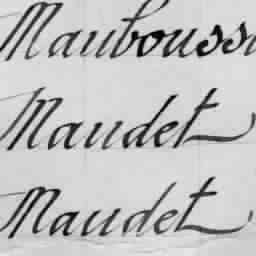 Maubouss
Maudet
Maudet